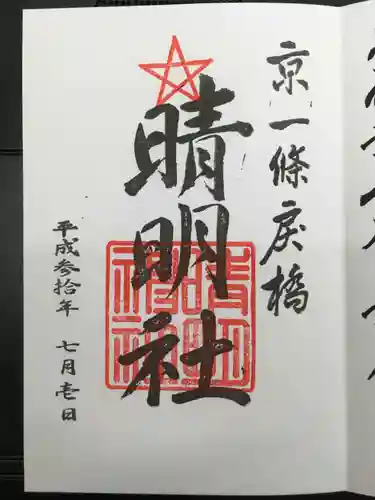 京一條戻橋
晴明社
平成参拾年 七月壱日